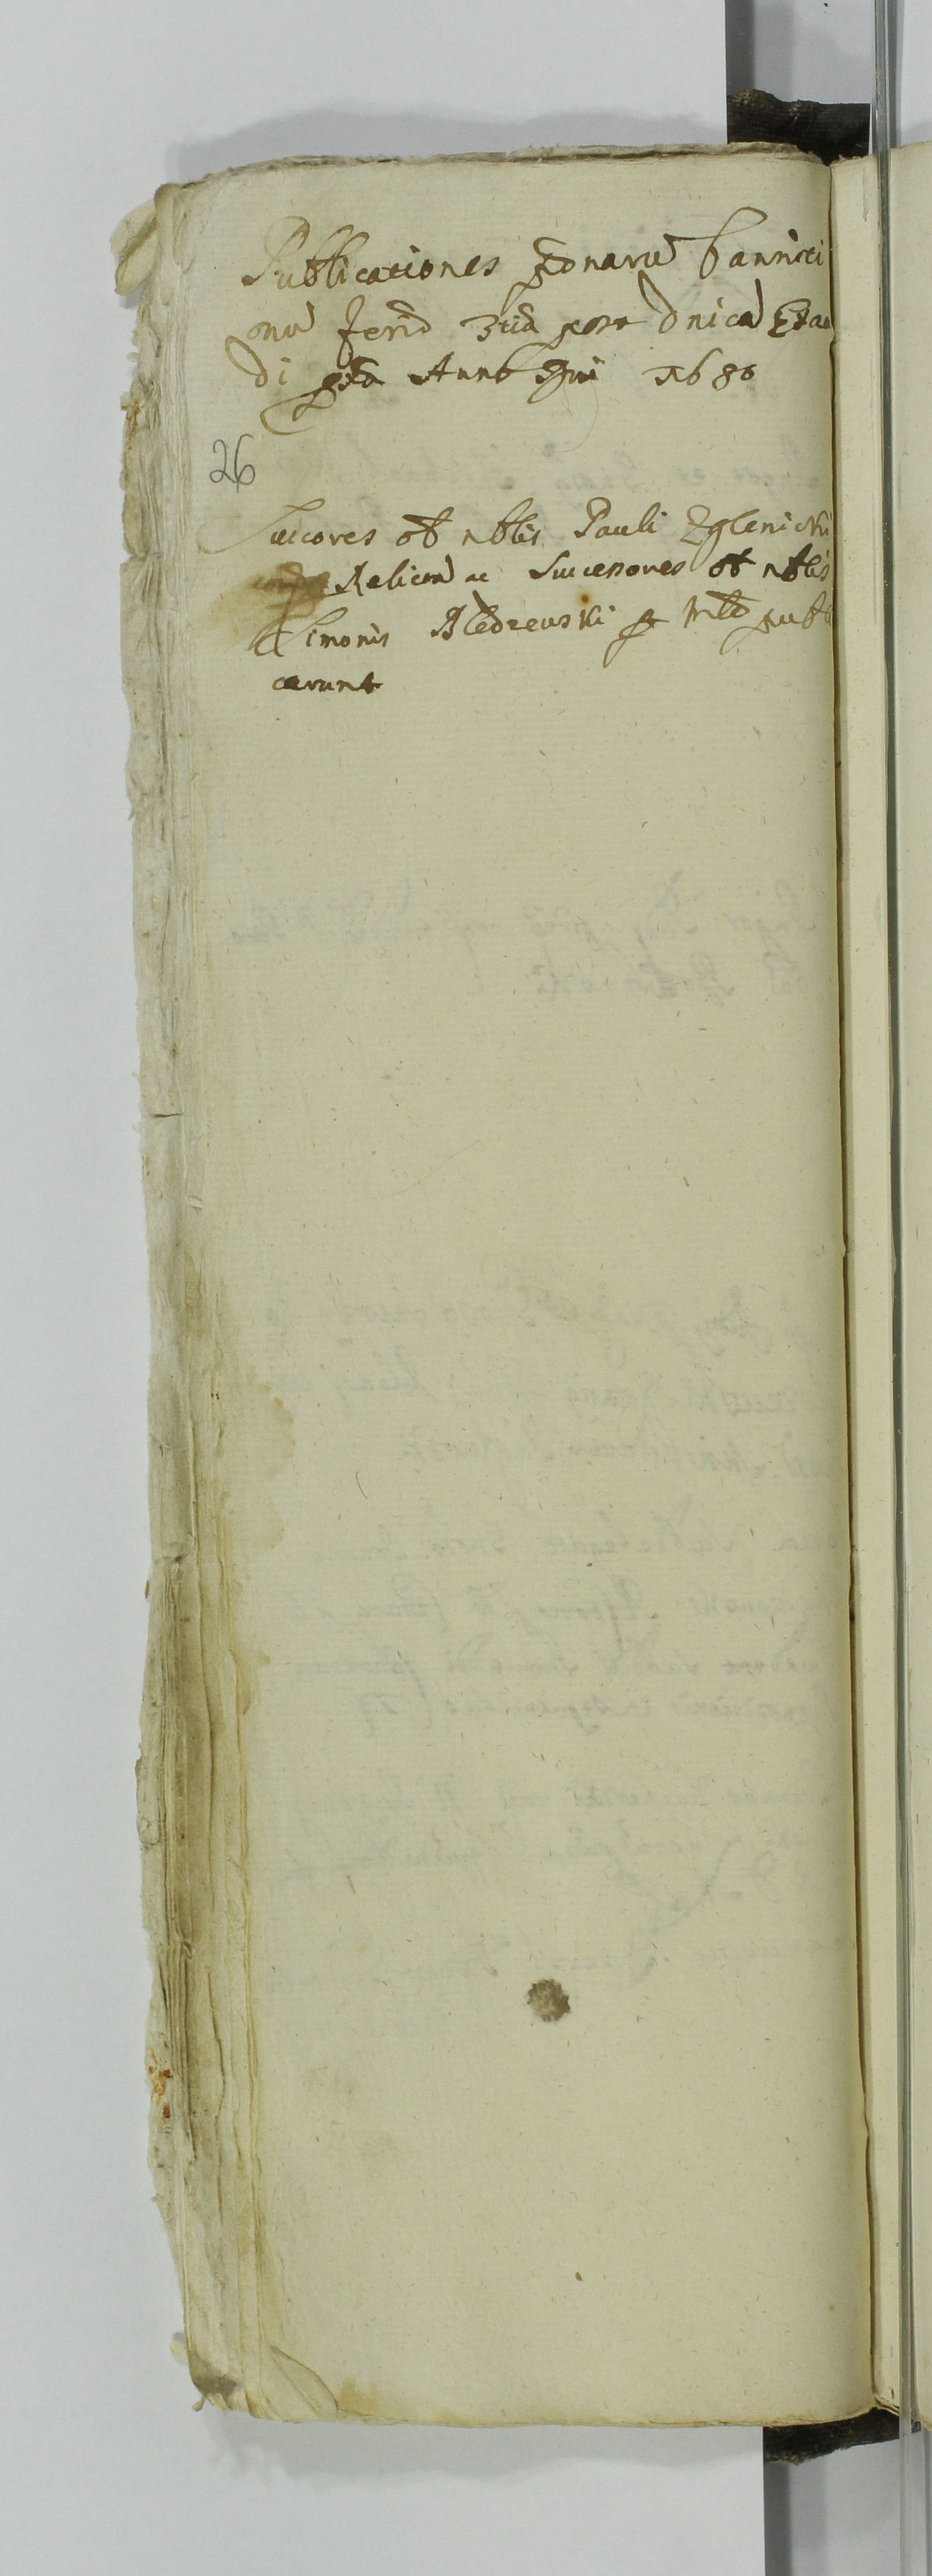 Publicationes Pdnarũ banniti
onũ feriã 3tiã post Dnicã Exau
di Anno Dni 1680
26
Succores ob nblis Pauli Zglenicki
Relictã ac Successores ob nblis
Simonis Bledzewski pr publi
carunt